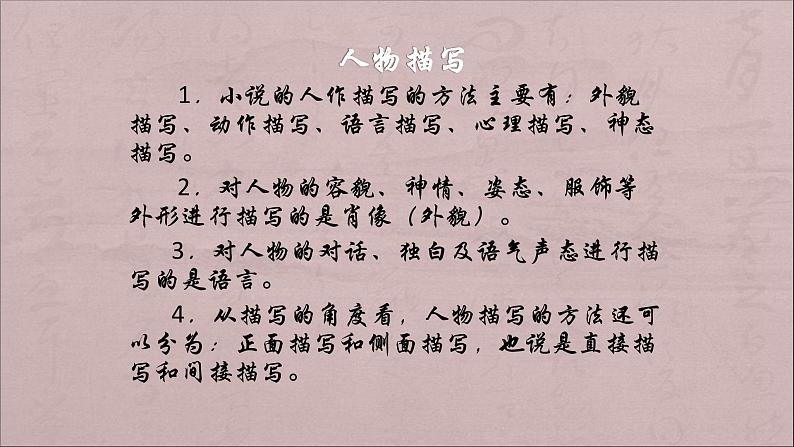 人物描写
1．小说的人作描写的方法主要有：外貌
描写、动作描写、语言描写、心理描写、神态
描写。
2．对人物的容貌、神情、姿态、服饰等
外形进行描写的是肖像（外貌）。
3．对人物的对话、独白及语气声态进行描
写的是语言。
4．从描写的角度看，人物描写的方法还可
以分为：正面描写和侧面描写，也说是直接描
写和间接描写。